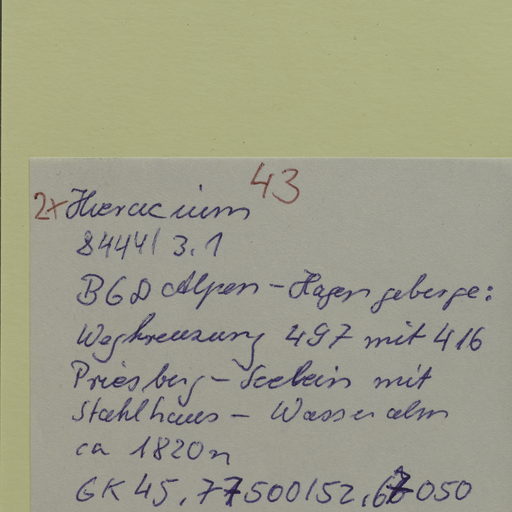 43
2x Hieracium
8444/3.1
BGD Alpen - Hagengebirge:
Wegkreuzung 497 mit 416
Priesberg - Seelein mit
Stahlhaus - Wasseralm
ca 1820m
GK 45,77500/52,67050